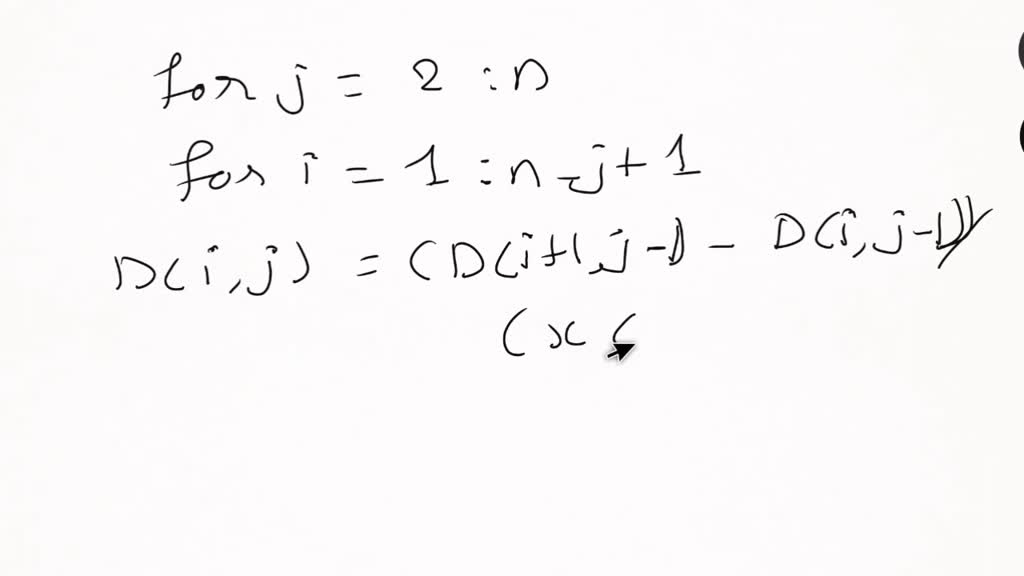 for j = 2 : n
for i = 1 : n - j + 1
D(i,j) = (D(i+1,j-1) - D(i,j-1))/
(x(